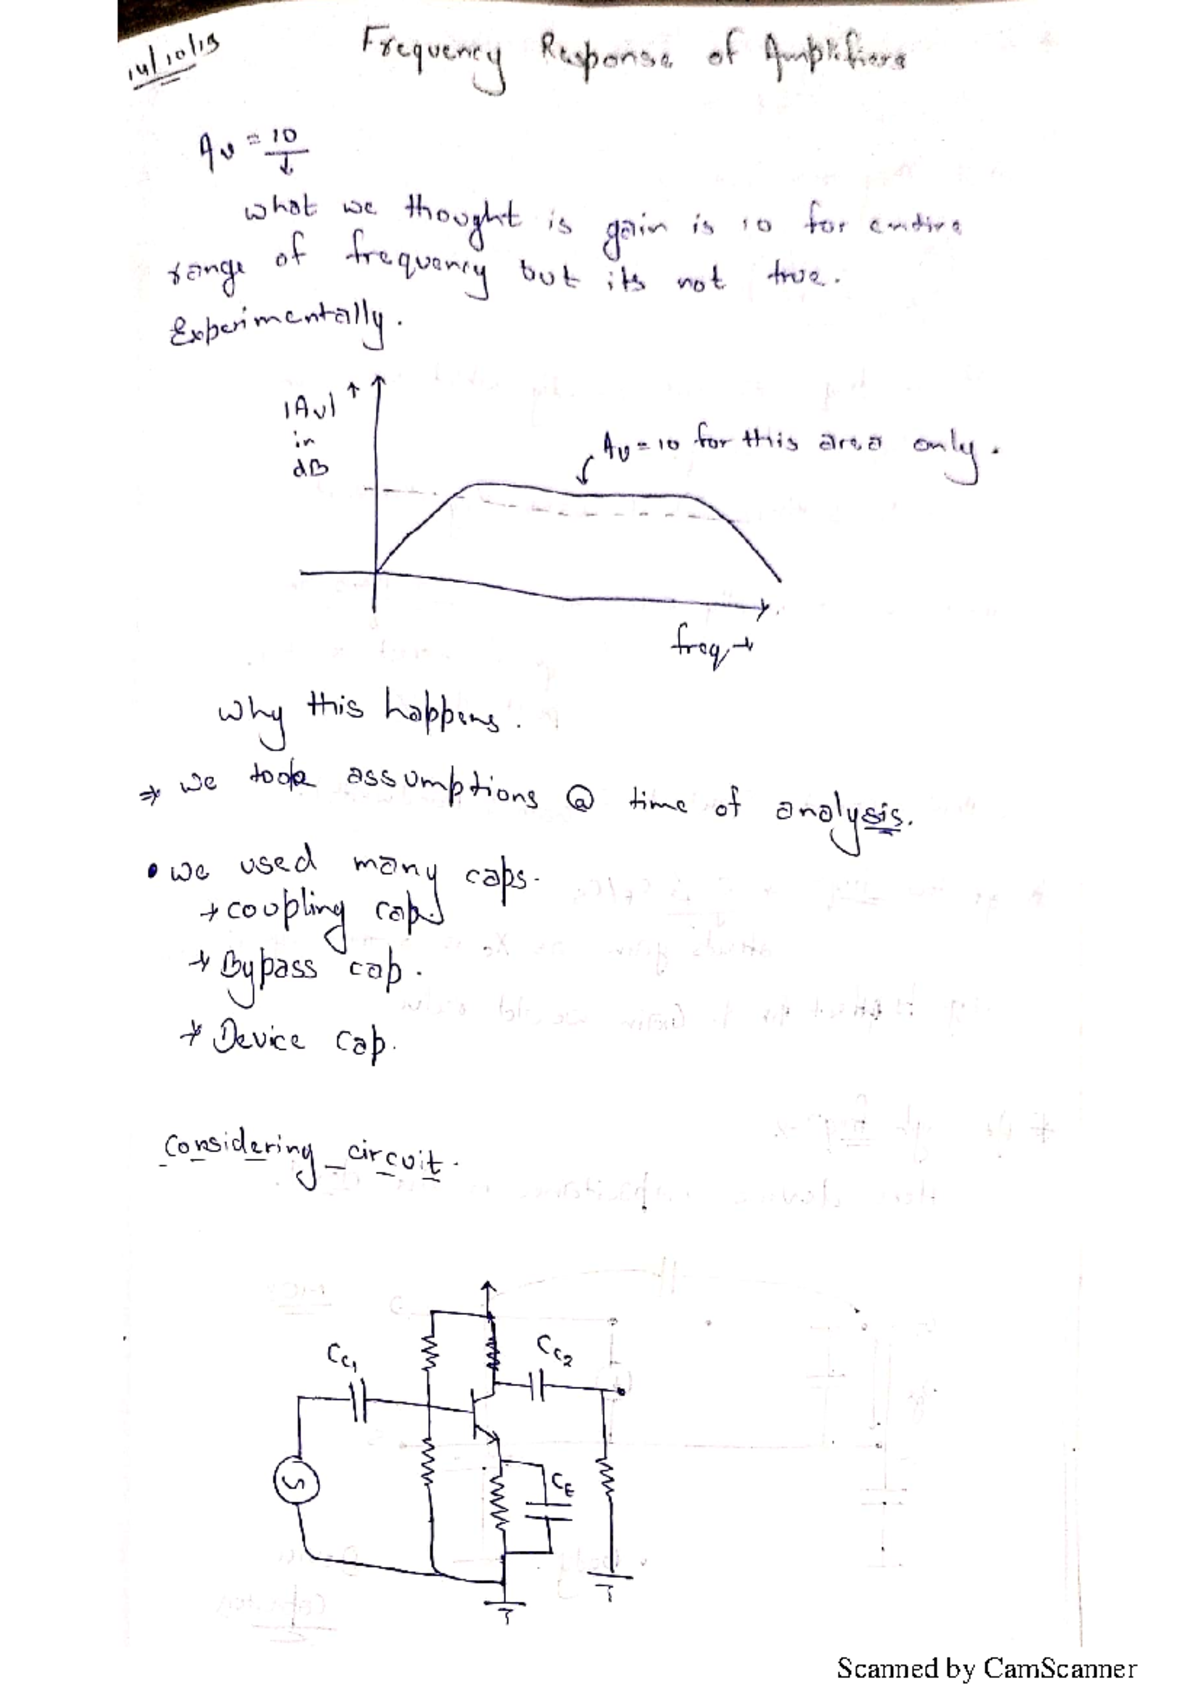 14/10/19
Frequency Response of Amplifiers
Av = 10
what we thought is gain is 10 for entire
range of frequency but its not true.
Experimentally.
|Av| ↑
in
dB
Av = 10 for this area only.
freq →
why this happens.
⇒ we took assumptions @ time of analysis.
• we used many caps.
→ coupling cap.
→ Bypass cap.
→ Device cap.
Considering circuit.
CC1
CC2
CE
Scanned by CamScanner